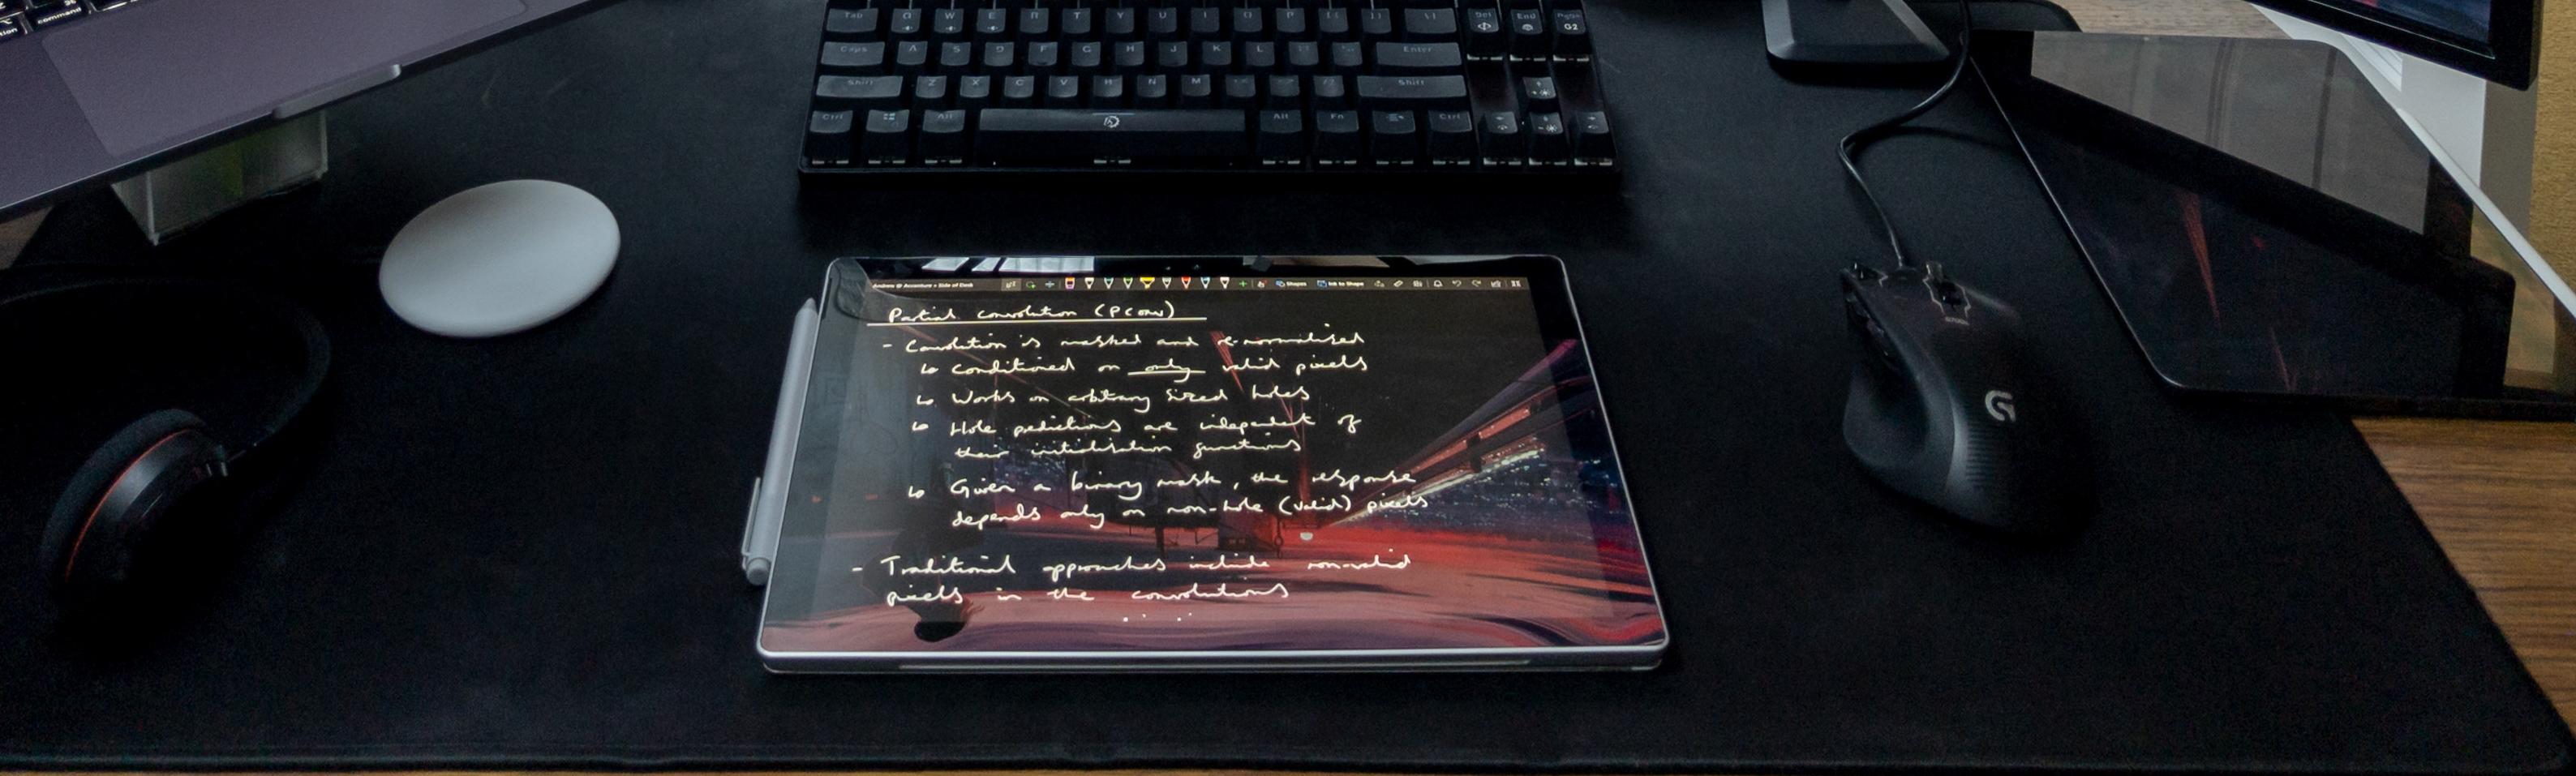 command
Tab Q W E R T Y U I O P Del End
Caps A S D F G H J K L Enter
Shift Z X C V B N M Shift
Ctrl Alt Alt Fn Ctrl
G
Andrew @ Accenture > Side of Desk Shapes Ink to Shape
Partial convolution (PConv)
- Convolution is masked and re-normalised
↳ Conditioned on only valid pixels
↳ Works on arbitrary sized holes
↳ Hole predictions are independent of
their initialisation functions
↳ Given a binary mask, the response
depends only on non-hole (valid) pixels
- Traditional approaches include non-valid
pixels in the convolutions